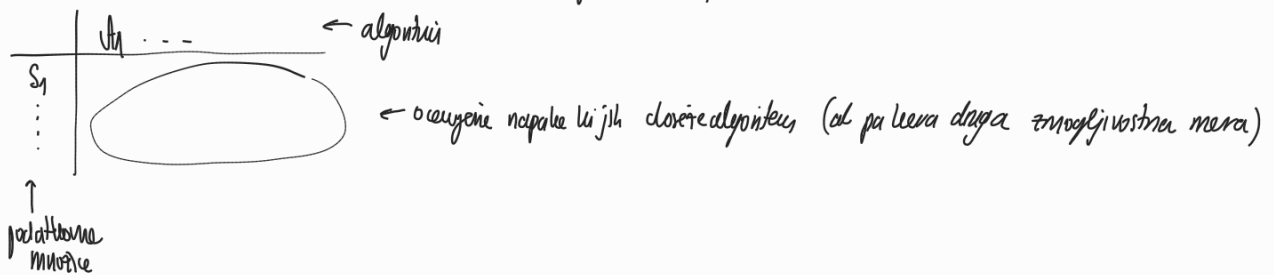 A₁ · - - ← algoritmi
S₁
← ocenjene napake ki jih doseže algoritem (ali pa kera druga zmogljivostna mera)
↑
podatkovne
množice